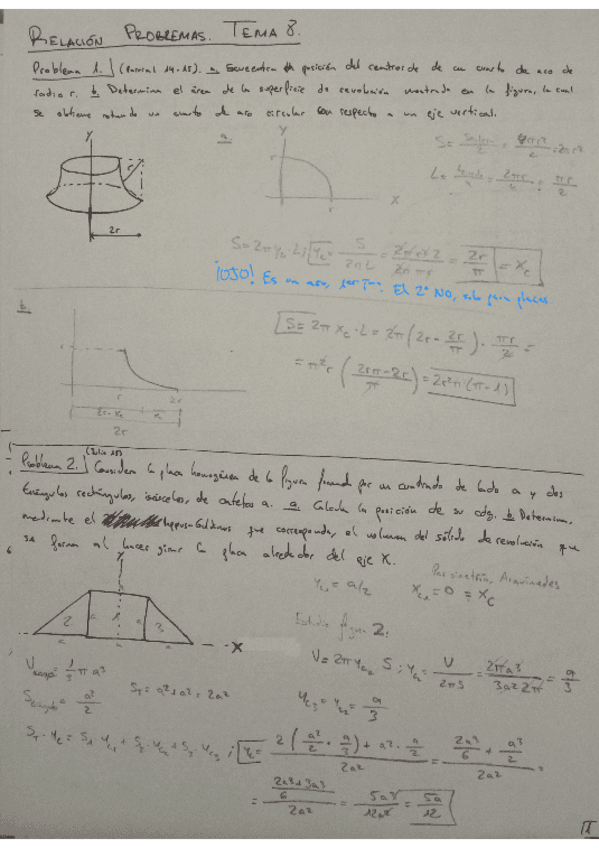 RELACIÓN PROBLEMAS. TEMA 8.
Problema 1. (Parcial 14-15). a. Encuentra posición del centroide de un cuarto de arco de
radio r. b. Determina el área de la superficie de revolución mostrada en la figura, la cual
se obtiene rotando un cuarto de arco circular con respecto a un eje vertical.
Y
r
2r
a.
Y
r
r
X
S = /2 = 4πr²/2 = 2πr²
L = /4 = 2πr/4 = πr/2
S = 2π y_c · L; y_c = S/2πL = 2πr²·2/2π πr = 2r/π = x_c
¡OJO! Es un arco, . El 2º NO, solo para placas
b.
r
r
2r
2r - x_c
2r
S = 2π x_c · L = 2π (2r - 2r/π) · πr/2 =
= π²r (2rπ-2r/π) = 2r²π(π-1)
Problema 2. (Julio 15) Considera la placa homogénea de la figura formada por un cuadrado de lado a y dos
triángulos rectángulos, isósceles, de catetos a. a. Calcula la posición de su cdg. b. Determina,
mediante el Pappus-Guldinus que corresponda, el volumen del sólido de revolución que
se forma al hacer girar la placa alrededor del eje X.
Y
2 a 1 a 3
a a a
X
y_c1 = a/2
Por simetría, Arquímedes
x_c1 = 0 = x_c
Estudio figura 2:
V = 2π y_c2 S ; y_c2 = V/2πS = 2πa³/3a²2π = a/3
y_c3 = y_c2 = a/3
V = 1/3 π a³
S = a²/2
S_T = a²+a² = 2a²
S_T · y_c = S_1 y_c1 + S_2 · y_c2 + S_3 · y_c3 ; y_c = 2(a²/2 · a/3) + a² · a/2 / 2a² = 2a³/6 + a³/2 / 2a² =
= 2a³+3a³/6 / 2a² = 5a³/12a² = 5a/12
1